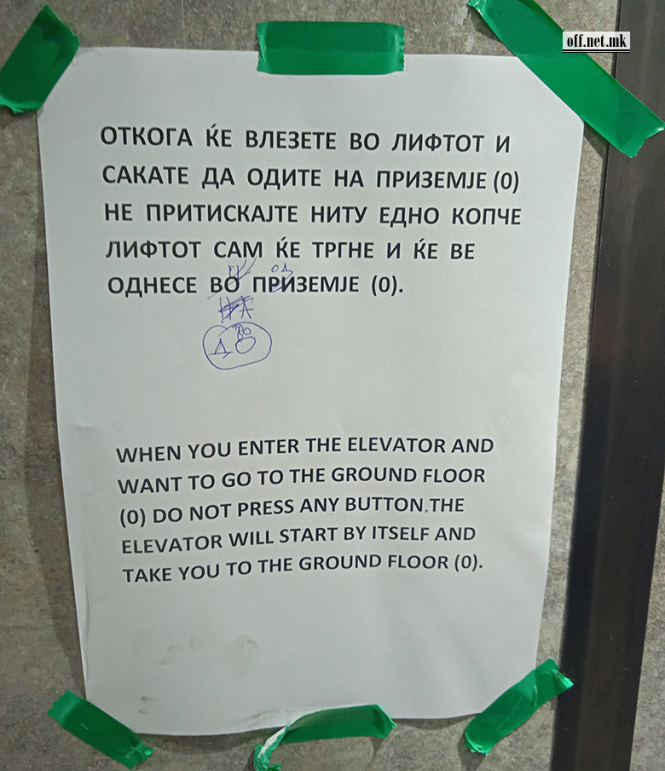 off.net.mk
ОТКОГА ЌЕ ВЛЕЗЕТЕ ВО ЛИФТОТ И
САКАТЕ ДА ОДИТЕ НА ПРИЗЕМЈЕ (0)
НЕ ПРИТИСКАЈТЕ НИТУ ЕДНО КОПЧЕ
ЛИФТОТ САМ ЌЕ ТРГНЕ И ЌЕ ВЕ
ОДНЕСЕ ВО ПРИЗЕМЈЕ (0).
НА
ДО
WHEN YOU ENTER THE ELEVATOR AND
WANT TO GO TO THE GROUND FLOOR
(0) DO NOT PRESS ANY BUTTON.THE
ELEVATOR WILL START BY ITSELF AND
TAKE YOU TO THE GROUND FLOOR (0).